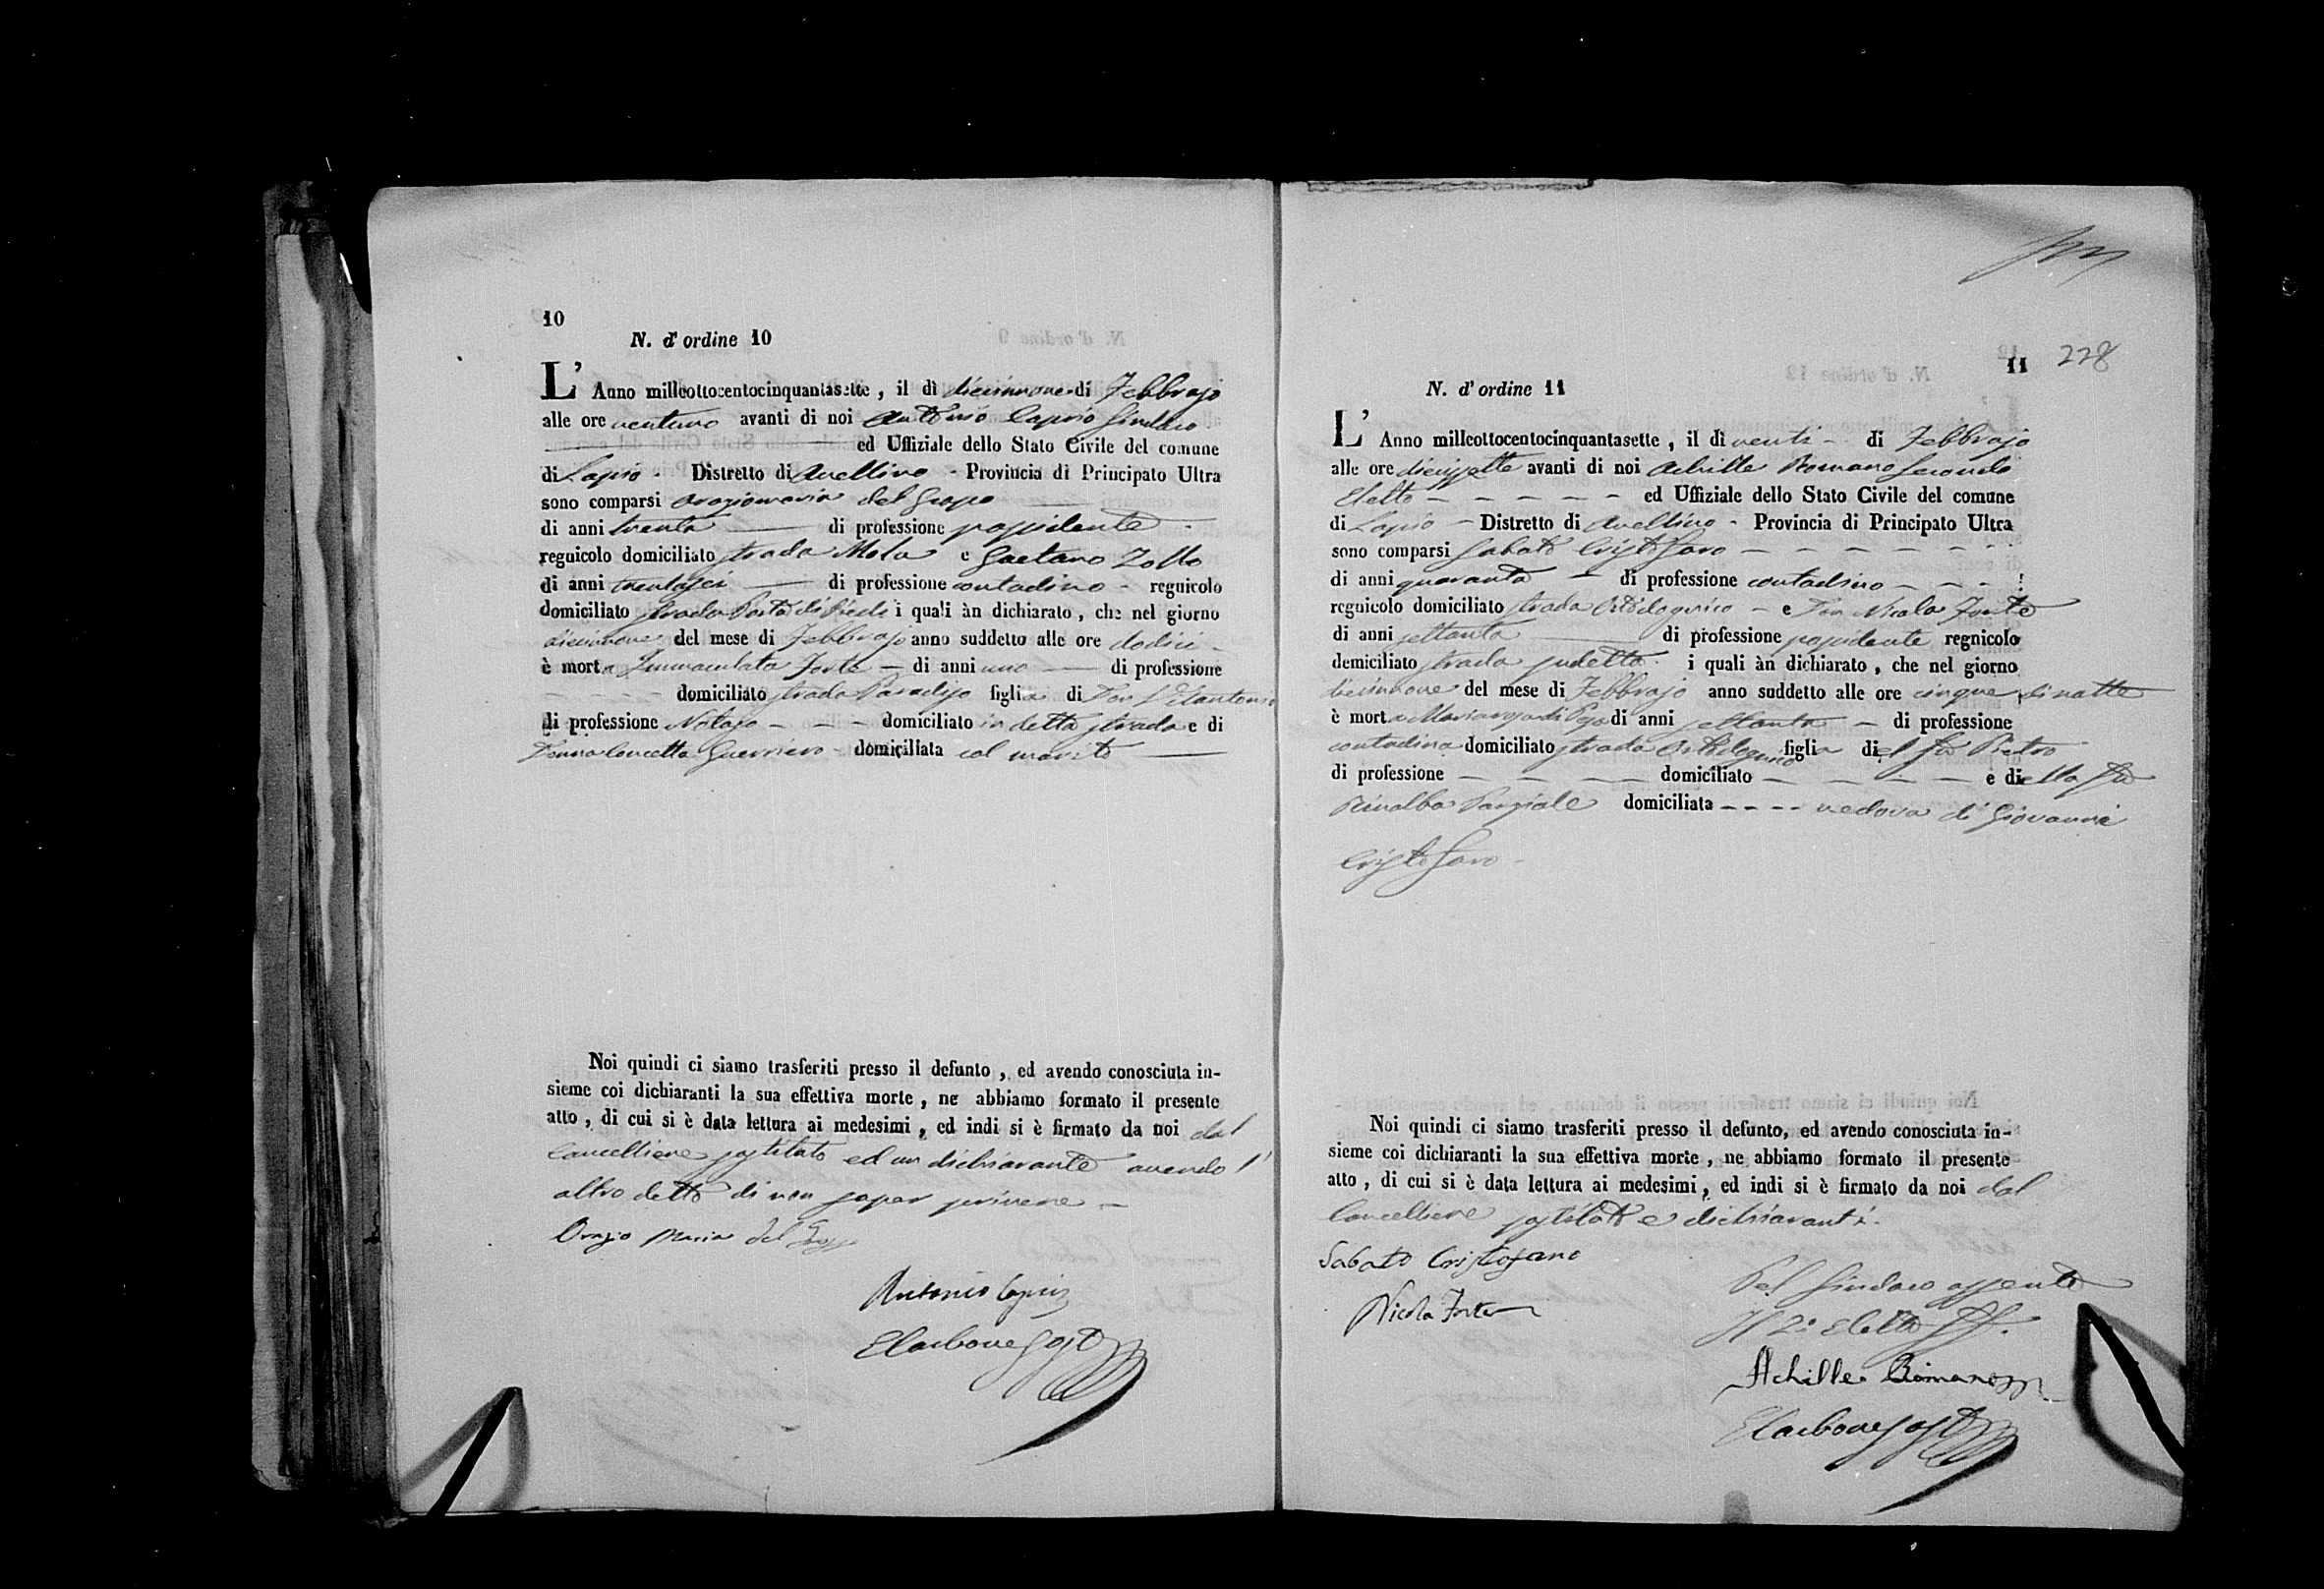 10
N. d'ordine 10
L' Anno milleottocentocinquantasette, il dì diecinnove di Febbrajo
alle ore ventuno avanti di noi Antonio Caprio Sindaco
ed Uffiziale dello Stato Civile del comune
di Lapio - Distretto di Avellino - Provincia di Principato Ultra
sono comparsi Oraziomaria del Grosso
di anni trenta di professione possidente -
regnicolo domiciliato strada Mola e Gaetano Zollo
di anni trentasei di professione contadino - regnicolo
domiciliato strada Porta di Piedi i quali àn dichiarato, che nel giorno
diecinnove del mese di Febbrajo anno suddetto alle ore dodici -
è morta Immaculata Forte - di anni uno di professione
- - - - domiciliato strada Paradiso figlia di Don Vitantonio
di professione Notajo - - - domiciliato in detta strada e di
Donna Concetta Guerriero - domiciliata col marito
Noi quindi ci siamo trasferiti presso il defunto, ed avendo conosciuta in-
sieme coi dichiaranti la sua effettiva morte, ne abbiamo formato il presente
atto, di cui si è data lettura ai medesimi, ed indi si è firmato da noi dal
Cancelliere sostituto ed un dichiarante avendo l'
altro detto di non saper scrivere -
Orazio Maria del
Antonio Caprio
11
228
N. d'ordine 11
L' Anno milleottocentocinquantasette, il dì venti - di Febbrajo
alle ore diecissette avanti di noi Achille Romano Secondo
Eletto - - - - - - ed Uffiziale dello Stato Civile del comune
di Lapio - Distretto di Avellino - Provincia di Principato Ultra
sono comparsi Sabato Cristofaro - - - - - - -
di anni quaranta - di professione contadino - - - -
regnicolo domiciliato strada - e Don Nicola Forte
di anni settanta di professione possidente regnicolo
domiciliato strada sudetta. i quali àn dichiarato, che nel giorno
diecinnove del mese di Febbrajo anno suddetto alle ore cinque di notte
è morta di anni settanta - di professione
contadina domiciliato strada figlia del fù Pietro
di professione - - - - domiciliato - - - - e della fù
Parziale domiciliata - - - - vedova di Giovanni
Cristofaro -
Noi quindi ci siamo trasferiti presso il defunto, ed avendo conosciuta in-
sieme coi dichiaranti la sua effettiva morte, ne abbiamo formato il presente
atto, di cui si è data lettura ai medesimi, ed indi si è firmato da noi dal
Cancelliere sostituto e dichiaranti.
Sabato Cristofano
Nicola Forte
Pel Sindaco assente
Il 2º Eletto ff.
Achille Romano